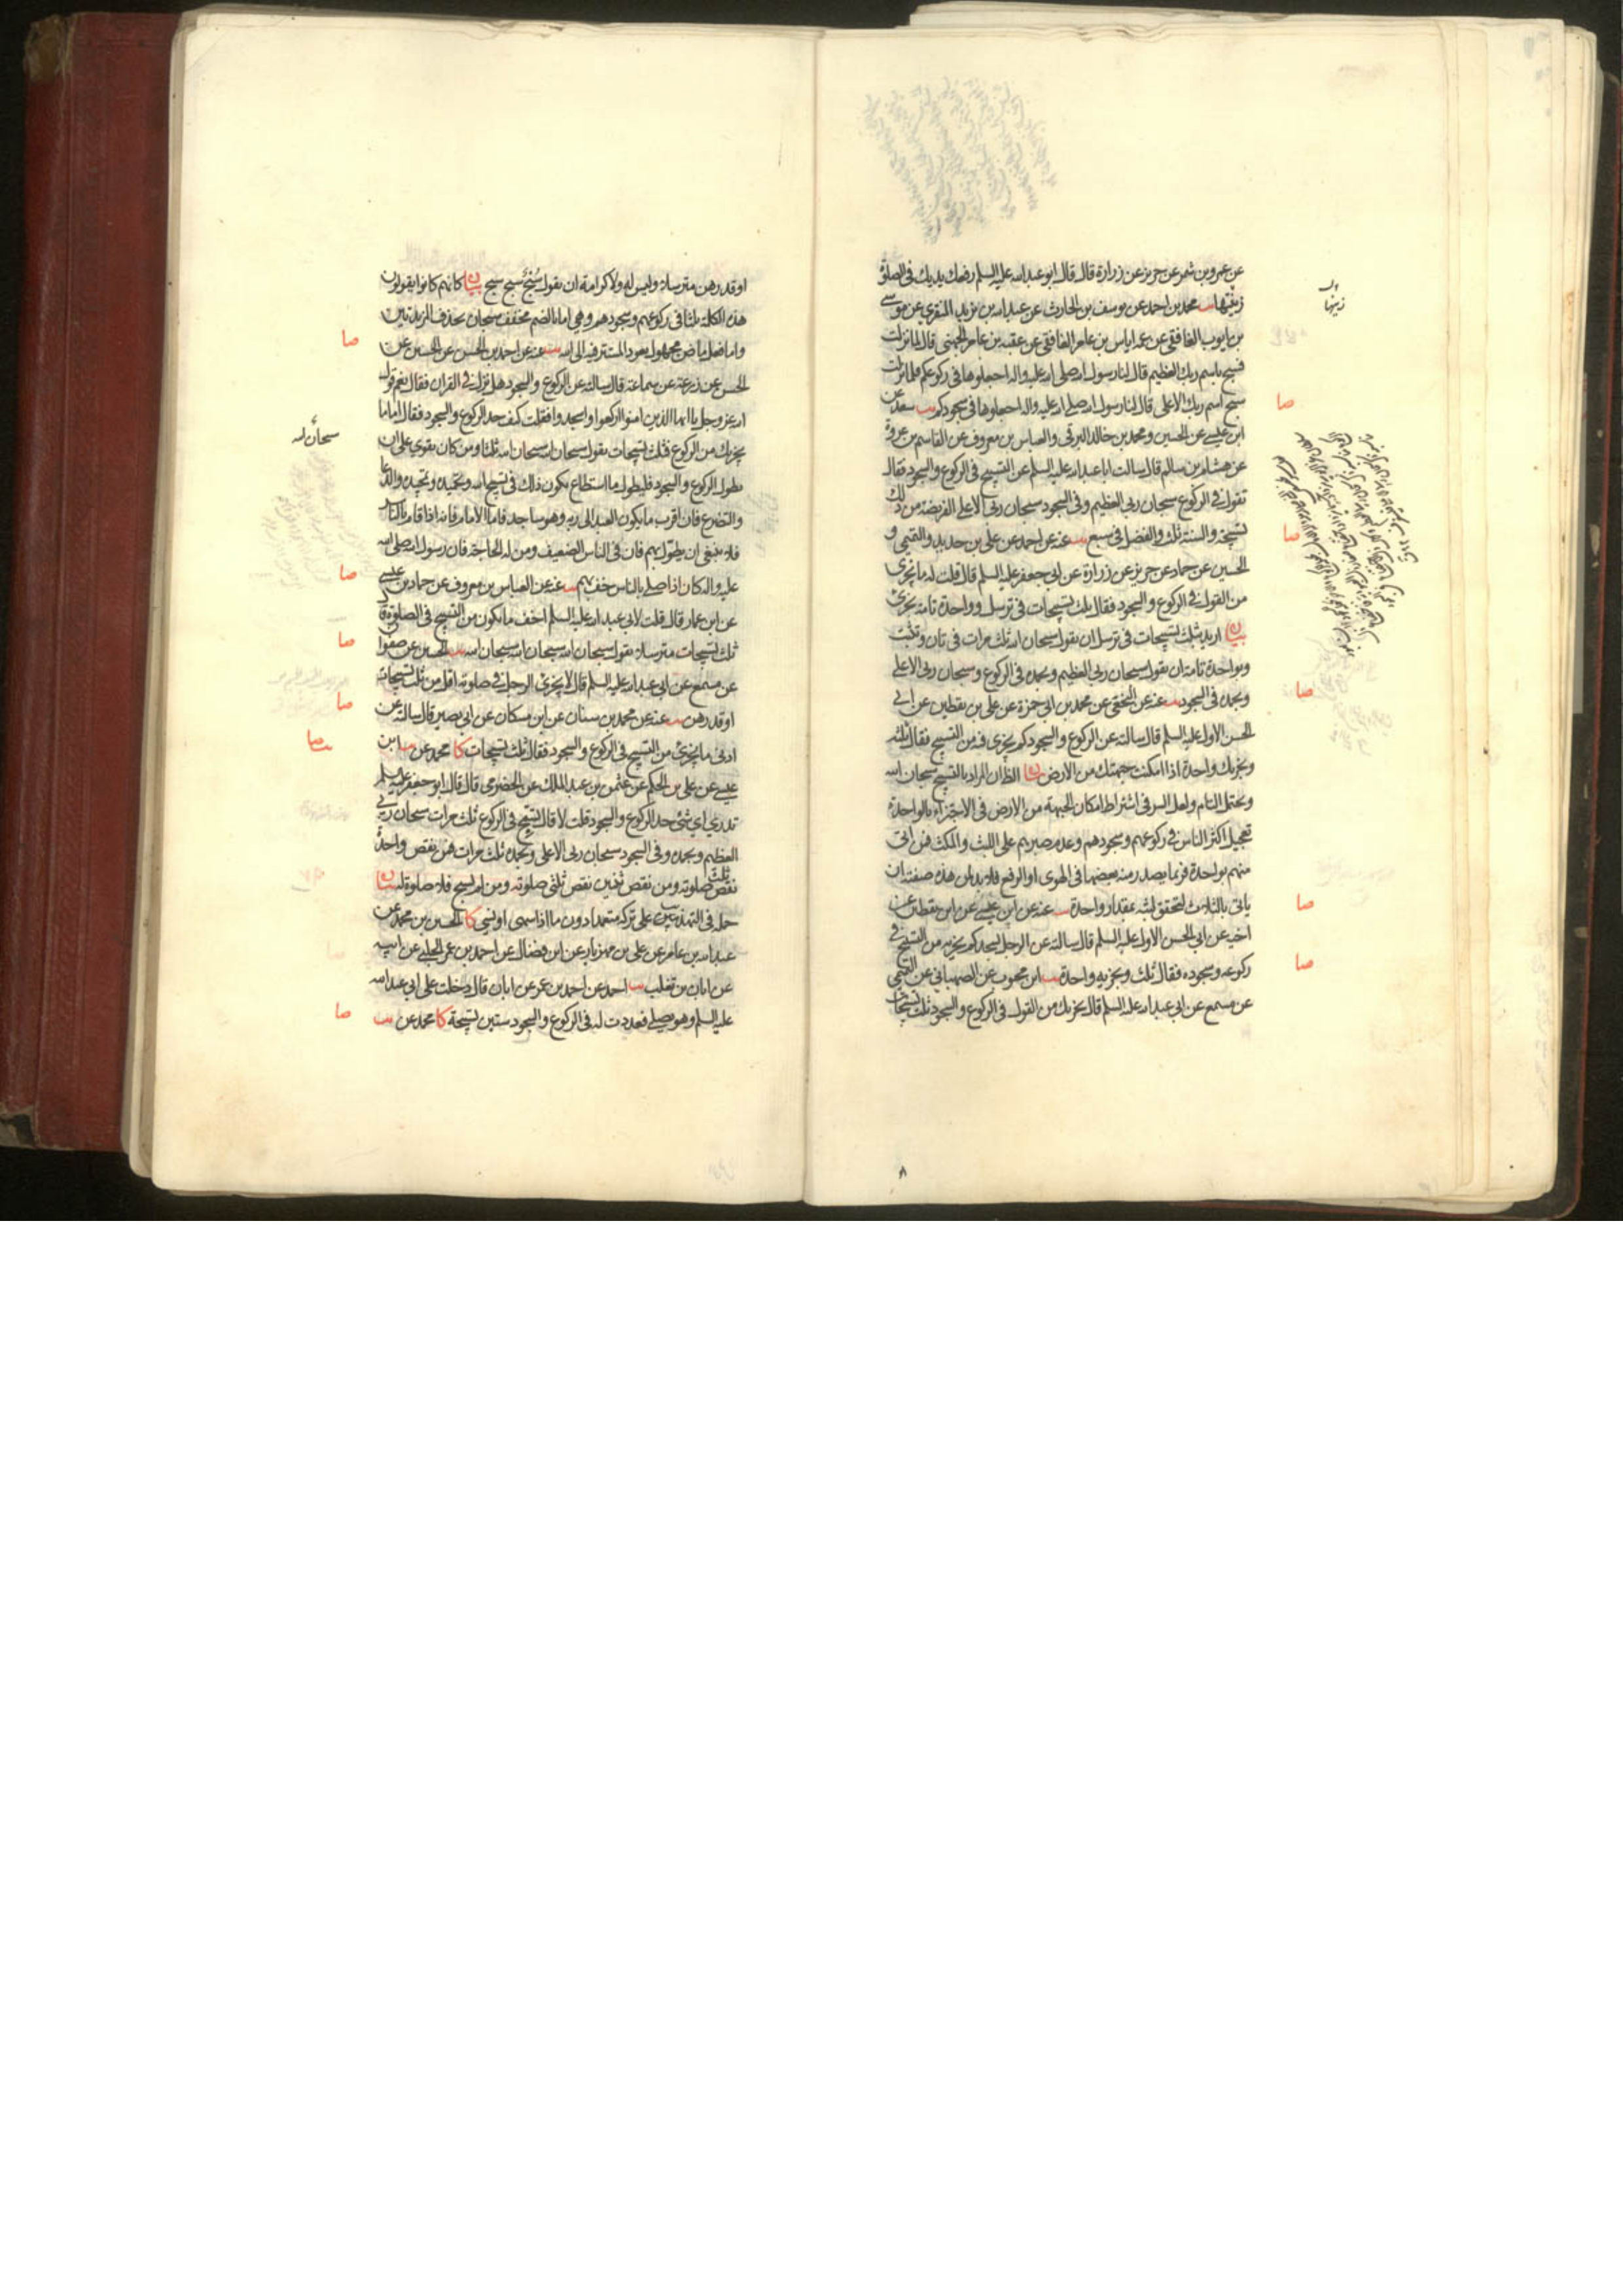 عن عمرو بن شمر عن حريز عن زرارة قال قال ابو عبد الله عليه السلم رفعك يديك فى الصلوة
زينتها يب محمد بن احمد عن يوسف بن الحارث عن عبد الله بن يزيد المنقري عن موسى
بن ايوب الغافقى عن عمه اياس بن عامر الغافقى عن عقبه بن عامر الجهنى قال لما نزلت
فسبح باسم ربك العظيم قال لنا رسول الله صلى الله عليه واله اجعلوها فى ركوعكم فلما نزلت
سبح اسم ربك الاعلى قال لنا رسول الله صلى الله عليه واله اجعلوها فى سجودكم يب سعد عن
ابن عيسى عن الحسين ومحمد بن خالد البرقى والعباس بن معروف عن القاسم بن عروة
عن هشام بن سالم قال سالت ابا عبد الله عليه السلم عن التسبيح فى الركوع والسجود فقال
تقول فى الركوع سبحان ربى العظيم وفى السجود سبحان ربى الاعلى الفريضة من ذلك
تسبيحة والسنة ثلث والفضل فى سبع يب عنه عن احمد عن على بن حديد والتميمى و
الحسين عن حماد عن حريز عن زرارة عن ابى جعفر عليه السلم قال قلت له ما يجزى
من القول فى الركوع والسجود فقال ثلث تسبيحات فى ترسل وواحدة تامة تجزى
بيان اريد بثلث تسبيحات فى ترسل ان يقول سبحان الله ثلث مرات فى تان وتثبت
وبواحدة تامة ان يقول سبحان ربى العظيم وبحمده فى الركوع وسبحان ربى الاعلى
وبحمده فى السجود يب عنه عن النخعى عن محمد بن ابى حمزة عن على بن يقطين عن ابى
الحسن الاول عليه السلم قال سالته عن الركوع والسجود كم يجزى فيه من التسبيح فقال ثلثه
وتجزيك واحدة اذا امكنت جبهتك من الارض بيان الظ ان المراد بالتسبيح سبحان الله
ويحتمل التام ولعل السر فى اشتراط امكان الجبهة من الارض فى الاجتزاء بالواحدة
تعجيل اكثر الناس فى ركوعهم وسجودهم وعدم صبرهم على اللبث والمكث فمن اتى
منهم بواحدة فربما يصدر منه بعضها فى الهوى او الرفع فلا بد لمن هذه صفته ان
ياتى بالثلاث لتحقق لبثه بمقدار واحدة يب عنه عن ابن عيسى عن ابن يقطين عن
اخيه عن ابى الحسن الاول عليه السلم قال سالته عن الرجل يسجد كم يجزيه من التسبيح فى
ركوعه وسجوده فقال ثلث وتجزيه واحدة يب ابن محبوب عن الصهبانى عن التميمى
عن مسمع عن ابى عبد الله عليه السلم قال يجزيك من القول فى الركوع والسجود ثلث تسبيحات
زينتها
صا
صا
صا
صا
صا
او قدرهن مترسلا وليس له ولا كرامة ان يقول سبح سبح سبح بيان كانهم كانوا يقولون
هذه الكلمة ثلثا فى ركوعهم وسجودهم وهى اما بالضم مخفف سبحان بحذف الزيدتين
واما فعل ماض مجهول يعود المستتر فيه الى الله يب عنه عن احمد بن الحسن عن الحسين عن
الحسن عن زرعة عن سماعة قال سالته عن الركوع والسجود هل نزل فى القران فقال نعم قول
الله عز وجل يا ايها الذين امنوا اركعوا واسجدوا فقلت كيف حد الركوع والسجود فقال اما ما
يجزيك من الركوع فثلث تسبيحات يقول سبحان الله سبحان الله ثلثا ومن كان يقوى على ان
يطول الركوع والسجود فليطول ما استطاع يكون ذلك فى تسبيح الله وتحميده وتمجيده والدعا
والتضرع فان اقرب ما يكون العبد الى ربه وهو ساجد فاما الامام فانه اذا قام بالناس
فلا ينبغى ان يطول بهم فان فى الناس الضعيف ومن له الحاجة فان رسول الله صلى الله
عليه واله كان اذا صلى بالناس خف بهم يب عنه عن العباس بن معروف عن حماد بن عيسى
عن ابن عمار قال قلت لابى عبد الله عليه السلم اخف ما يكون من التسبيح فى الصلوة قال
ثلث تسبيحات مترسلا يقول سبحان الله سبحان الله سبحان الله يب الحسين عن صفوان
عن مسمع عن ابى عبد الله عليه السلم قال لا يجزى الرجل فى صلوته اقل من ثلث تسبيحات
او قدرهن يب عنه عن محمد بن سنان عن ابن مسكان عن ابى بصير قال سالته عن
ادنى ما يجزى من التسبيح فى الركوع والسجود فقال ثلث تسبيحات كا محمد عن يب ابن
عيسى عن على بن الحكم عن عثمن بن عبد الملك عن الحضرمى قال قال ابو جعفر عليه السلم
تدري اي شئ حد الركوع والسجود قلت لا قال تسبح فى الركوع ثلث مرات سبحان ربى
العظيم وبحمده وفى السجود سبحان ربى الاعلى وبحمده ثلث مرات فمن نقص واحدة
نقص ثلث صلوته ومن نقص ثنتين نقص ثلثى صلوته ومن لم يسبح فلا صلوة له بيان
حمله فى التهذيبين على تركه متعمدا دون ما اذا سهى او نسى كا الحسين بن محمد عن
عبد الله بن عامر عن على بن مهزيار عن ابن فضال عن احمد بن عمر الحلبى عن ابيه
عن ابان بن تغلب يب احمد عن احمد بن عمر عن ابان قال دخلت على ابى عبد الله
عليه السلم وهو يصلى فعددت له فى الركوع والسجود ستين تسبيحة كا محمد عن يب
صا
سبحان الله
صا
صا
صا
يب صا
صا